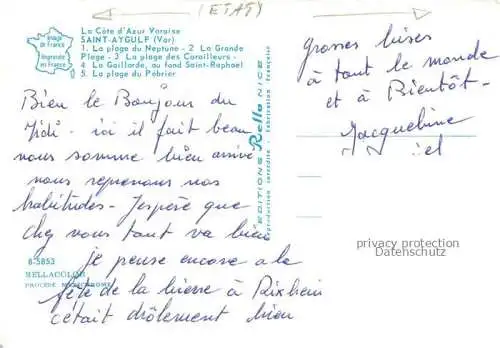 (ETAT)
Image de France
Imprimé en France
La Côte d'Azur Varoise
SAINT-AYGULF (Var)
1. La plage du Neptune - 2 La Grande
Plage - 3 La plage des Corailleurs -
4 La Gaillarde, au fond Saint-Raphael
5. La plage du Pébrier
Bien le Bonjour du
Midi - ici il fait beau
nous somme bien arrivé
nous reprenons nos
habitudes - J'espère que
chez vous tout va bien
je pense encore a la
fête de la bierre à Rixheim
c'était drôlement bien
8-5853
RELLACOLOR
PROCEDE
EDITIONS Rella NICE
Reproduction interdite - Fabrication française
Grosses bises
à tout le monde
et à Bientôt -
Jacqueline
privacy protection
Datenschutz